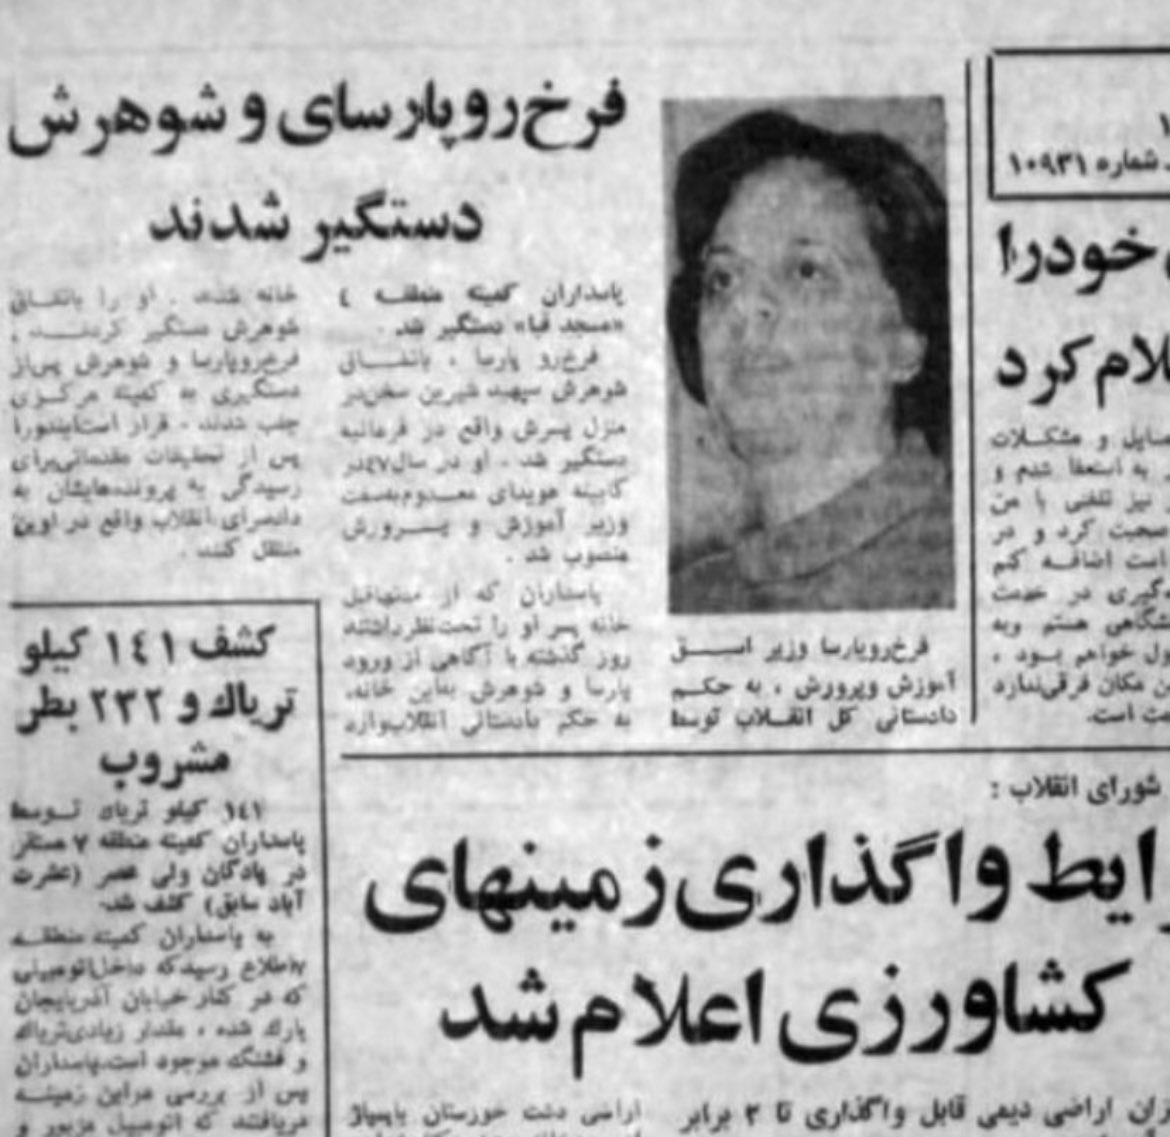 شماره ۱۰۹۳۱
خودرا
لام کرد
سایل و مشکلات
به استعفا شدم و
نیز تلفنی با من
صحبت کرد و در
است اضافه کنم
گیری در خدمت
شگاهی هستم وبه
ول خواهم بود ،
ن مکان فرقی‌ندارد
ت است.
فرخ‌رو پارسای و شوهرش
دستگیر شدند
فرخ‌روپارسا وزیر اسبق
آموزش وپرورش ، به حکم
دادستانی کل انقلاب توسط
پاسداران کمیته منطقه ٤
«مسجد قبا» دستگیر شد .
فرخ‌رو پارسا ، باتفاق
شوهرش سپهبد شیرین سخن‌در
منزل پسرش واقع در فرمانیه
دستگیر شد . او در سال٤۷در
کابینه هویدای معدوم‌بسمت
وزیر آموزش و پرورش
منصوب شد .
پاسداران که از مدتهاقبل
خانه پسر او را تحت‌نظرداشتند
روز گذشته با آگاهی از ورود
پارسا و شوهرش به‌این خانه،
به حکم دادستانی انقلاب‌وارد
خانه شدند . او را باتفاق
شوهرش دستگیر کردند .
فرخ‌روپارسا و شوهرش پس‌از
دستگیری به کمیته مرکزی
جلب شدند . قرار است‌ایندورا
پس از تحقیقات مقدماتی‌برای
رسیدگی به پرونده‌هایشان به
دادسرای انقلاب واقع در اوین
منتقل کنند .
کشف ۱٤۱ کیلو
تریاك و ۲۳۲ بطر
مشروب
۱٤۱ کیلو تریاك توسط
پاسداران کمیته منطقه ۷ مستقر
در پادگان ولی عصر (عشرت
آباد سابق) کشف شد.
به پاسداران کمیته منطقه
۷اطلاع رسیدکه داخل‌اتومبیلی
که در کنار خیابان آذربایجان
پارك شده ، مقدار زیادی‌تریاك
و فشنگ موجود است.پاسداران
پس از بررسی دراین زمینه
دریافتند که اتومبیل مزبور و
شورای انقلاب :
رایط واگذاری زمینهای
کشاورزی اعلام شد
اراضی دیمی قابل واگذاری تا ۳ برابر
اراضی دشت خوزستان